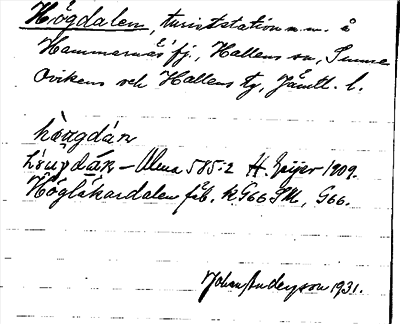 Högdalen, turiststation m.m. å
Hammernäsfj., Hallens sn, Sunne
Ovikens och Hallens tg, Jämtl. l.
hö̀gdán
Ulma 585:2 H. Geijer 1909.
Höglåkardalen fäb. k. G66 SM, G66.
Johan Anderson 1931.